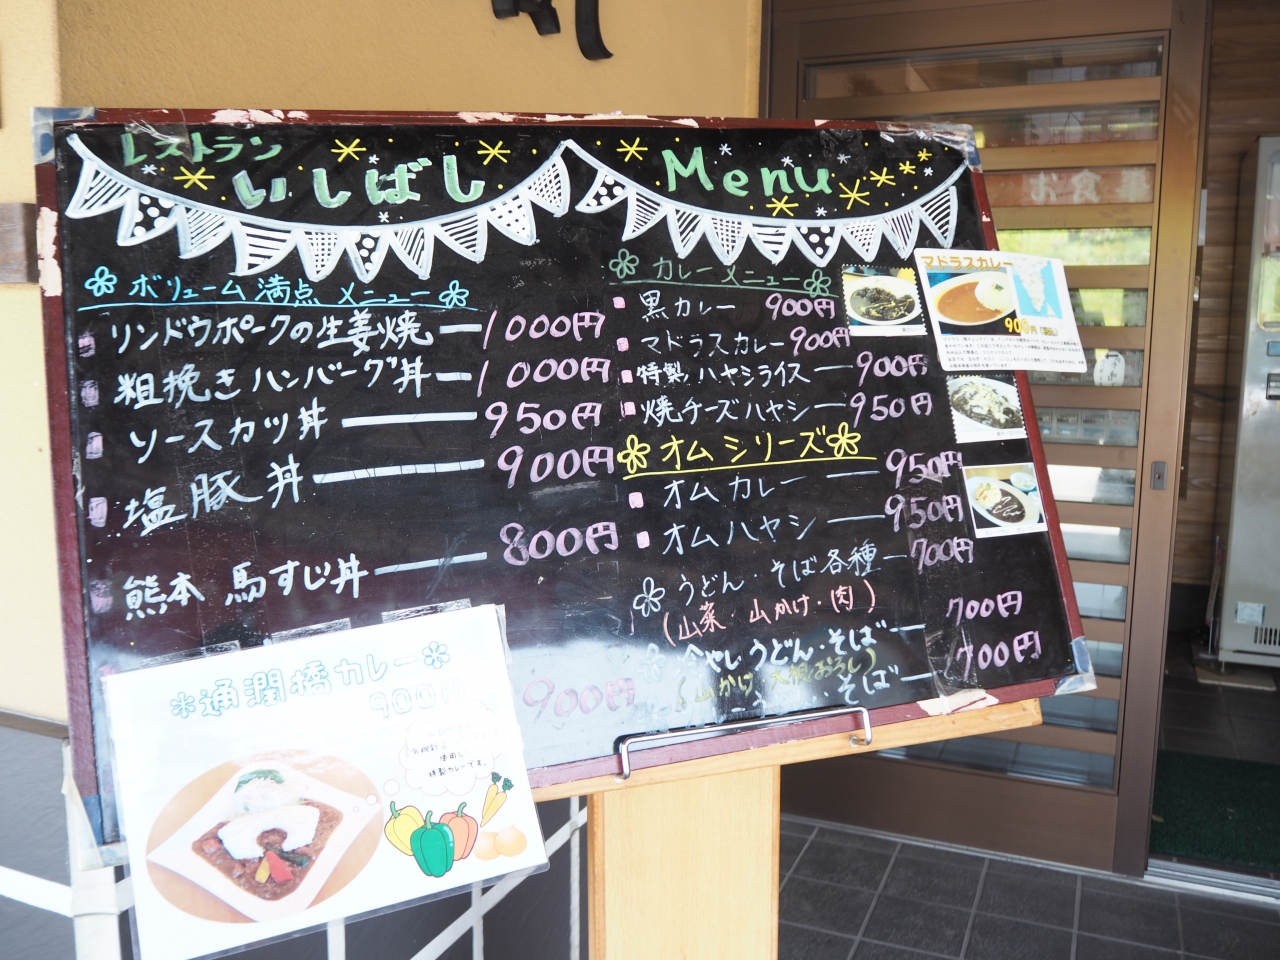 レストラン
いしばし
Menu
ボリューム満点 メニュー
リンドウポークの生姜焼 1000円
粗挽きハンバーグ丼 1000円
ソースカツ丼 950円
塩豚丼 900円
熊本 馬すじ丼 800円
900円
カレーメニュー
黒カレー 900円
マドラスカレー 900円
特製ハヤシライス 900円
焼チーズハヤシ 950円
オムシリーズ
オムカレー 950円
オムハヤシ 950円
うどん・そば各種 700円
(山菜・山かけ・肉)
冷やしうどん・そば 700円
(山かけ・大根おろし)
そば 700円
マドラスカレー
900円
通潤橋カレー
900円
使用した
特製カレーです。
お食事